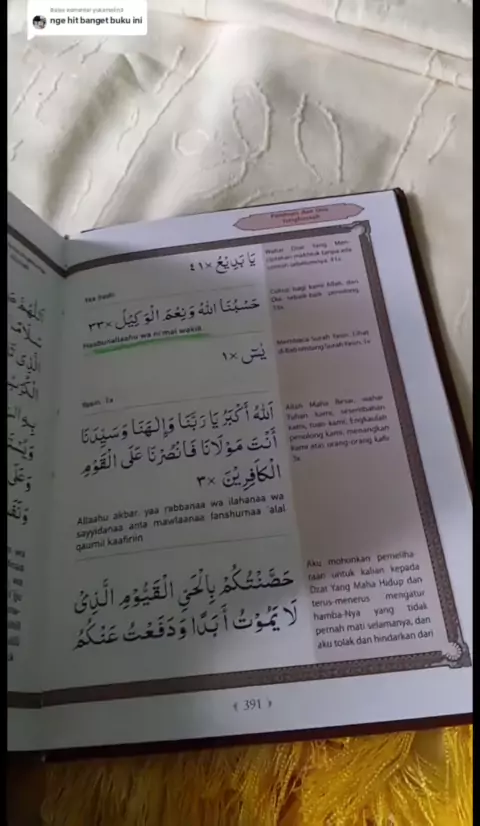 nge hit banget buku ini
Panduan dan Doa
يَا بَدِيْعُ ×٤١
Wahai Dzat Yang Men-
ciptakan makhluk tanpa ada
contoh sebelumnya. 41x
حَسْبُنَا اللهُ وَنِعْمَ الْوَكِيْلُ ×٣٣
Hasbunallaahu wa ni'mal wakiil
Cukup bagi kami Allah, dan
Dia sebaik-baik penolong.
يٰسٓ ×١
Yasin. 1x
Membaca Surah Yasin. Lihat
اَللهُ أَكْبَرُ يَا رَبَّنَا وَإِلٰهَنَا وَسَيِّدَنَا
أَنْتَ مَوْلَانَا فَانْصُرْنَا عَلَى الْقَوْمِ
الْكَافِرِيْنَ ×٣
Allaahu akbar yaa rabbanaa wa ilahanaa wa
sayyidanaa anta mawlaanaa fanshurnaa 'alal
qaumil kaafiriin
Allah Maha Besar, wahai
Tuhan kami, sesembahan
kami, tuan kami, Engkaulah
penolong kami, menangkan
kami atas orang-orang kafir.
3x
حَصَّنْتُكُمْ بِالْحَيِّ الْقَيُّوْمِ الَّذِيْ
لَا يَمُوْتُ أَبَدًا وَدَفَعْتُ عَنْكُمُ
Aku mohonkan pemeliha-
raan untuk kalian kepada
Dzat Yang Maha Hidup dan
terus-menerus mengatur
hamba-Nya yang tidak
pernah mati selamanya, dan
aku tolak dan hindarkan dari
391